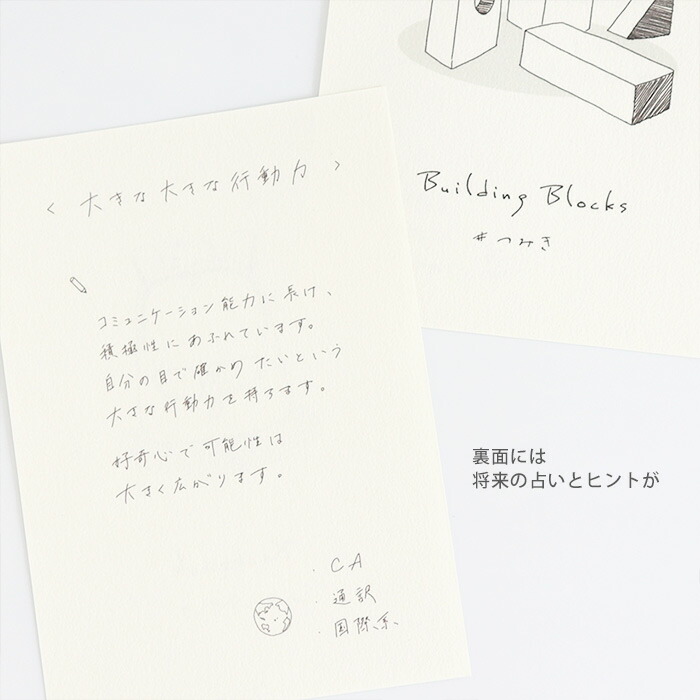 〈 大きな大きな行動力 〉
コミュニケーション能力に長け、
積極性にあふれています。
自分の目で確かめたいという
大きな行動力を持ちます。
好奇心で可能性は
大きく広がります。
・CA
・通訳
・国際系
Building Blocks
#つみき
裏面には
将来の占いとヒントが